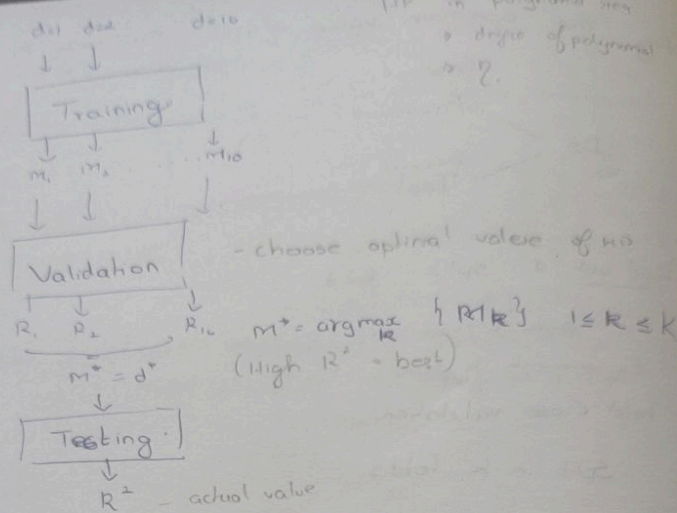 d=1 d=2 d=10
HP in polynomial reg
degree of polynomial
η.
Training
M₁ M₂ ...... M₁₀
Validation
- choose optimal value of HP
R₁ R₂ R₁₀
m* = argmax {Mk} 1 ≤ k ≤ K
k
(High R² = best)
m* = d*
Testing
R² - actual value